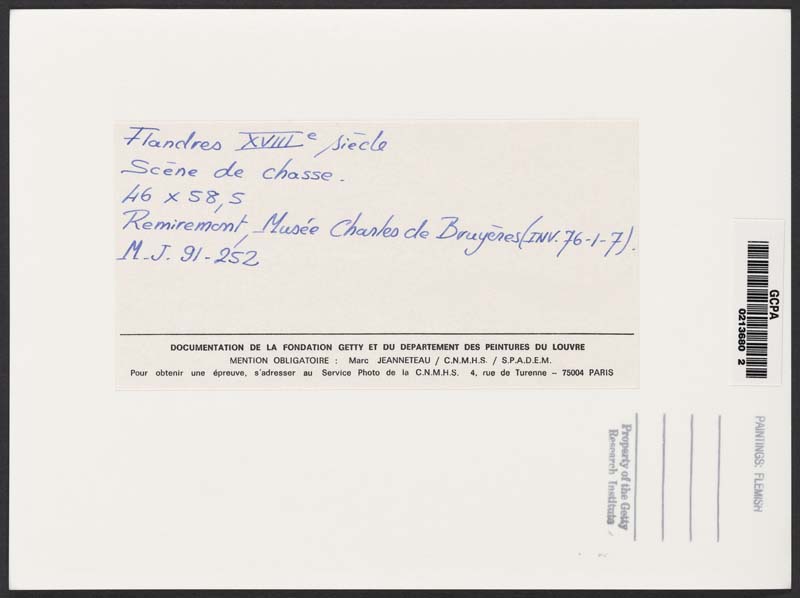 Flandres XVIIIe siècle
Scène de chasse.
46 x 58,5
Remiremont, Musée Charles de Bruyères (INV. 76-1-7).
M.J. 91-252
DOCUMENTATION DE LA FONDATION GETTY ET DU DEPARTEMENT DES PEINTURES DU LOUVRE
MENTION OBLIGATOIRE : Marc JEANNETEAU / C.N.M.H.S. / S.P.A.D.E.M.
Pour obtenir une épreuve, s'adresser au Service Photo de la C.N.M.H.S. 4, rue de Turenne – 75004 PARIS
GCPA
0213680 2
Property of the Getty
Research Institute
PAINTINGS: FLEMISH